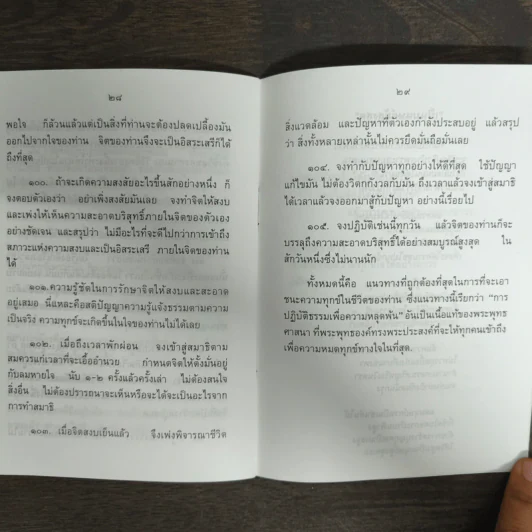 ๒๘
พอใจ ก็ล้วนแล้วแต่เป็นสิ่งที่ท่านจะต้องปลดเปลื้องมัน
ออกไปจากใจของท่าน จิตของท่านจึงจะเป็นอิสระเสรีก็ได้
ถึงที่สุด
๑๐๐. ถ้าจะเกิดความสงสัยอะไรขึ้นสักอย่างหนึ่ง ก็
จงตอบตัวเองว่า อย่าเพิ่งสงสัยมันเลย จงทำจิตให้สงบ
และเพ่งให้เห็นความสะอาดบริสุทธิ์ภายในจิตของตัวเอง
อย่างชัดเจน และสรุปว่า ไม่มีอะไรที่จะดีไปกว่าการเข้าถึง
สภาวะแห่งความสงบและเป็นอิสระเสรี ภายในจิตของท่าน
ได้
๑๐๑. ความรู้ชัดในการรักษาจิตให้สงบและสะอาด
อยู่เสมอ นี่แหละคือสติปัญญาความรู้แจ้งธรรมตามความ
เป็นจริง ความทุกข์จะเกิดขึ้นในใจของท่านไม่ได้เลย
๑๐๒. เมื่อถึงเวลาพักผ่อน จงเข้าสู่สมาธิตาม
สมควรแก่เวลาที่จะเอื้ออำนวย กำหนดจิตให้ตั้งมั่นอยู่
กับลมหายใจ นับ ๑-๒ ครั้งแล้วครั้งเล่า ไม่ต้องสนใจ
สิ่งอื่น ไม่ต้องปรารถนาจะเห็นหรือจะได้จะเป็นอะไรจาก
การทำสมาธิ
๑๐๓. เมื่อจิตสงบเย็นแล้ว จึงเพ่งพิจารณาชีวิต
๒๙
สิ่งแวดล้อม และปัญหาที่ตัวเองกำลังประสบอยู่ แล้วสรุป
ว่า สิ่งทั้งหลายเหล่านั้นไม่ควรยึดมั่นถือมั่นเลย
๑๐๔. จงทำกับปัญหาทุกอย่างให้ดีที่สุด ใช้ปัญญา
แก้ไขมัน ไม่ต้องวิตกกังวลกับมัน ถึงเวลาแล้วจงเข้าสู่สมาธิ
ได้เวลาแล้วจงออกมาสู้กับปัญหา อย่างนี้เรื่อยไป
๑๐๕. จงปฏิบัติเช่นนี้ทุกวัน แล้วจิตของท่านก็จะ
บรรลุถึงความสะอาดบริสุทธิ์ได้อย่างสมบูรณ์สูงสุด ใน
สักวันหนึ่งซึ่งไม่นานนัก
ทั้งหมดนี้คือ แนวทางที่ถูกต้องที่สุดในการที่จะเอา
ชนะความทุกข์ในชีวิตของท่าน ซึ่งแนวทางนี้เรียกว่า “การ
ปฏิบัติธรรมเพื่อความหลุดพ้น” อันเป็นเนื้อแท้ของพระพุทธ
ศาสนา ที่พระพุทธองค์ทรงพระประสงค์ที่จะให้ทุกคนเข้าถึง
เพื่อความหมดทุกข์ทางใจในที่สุด.